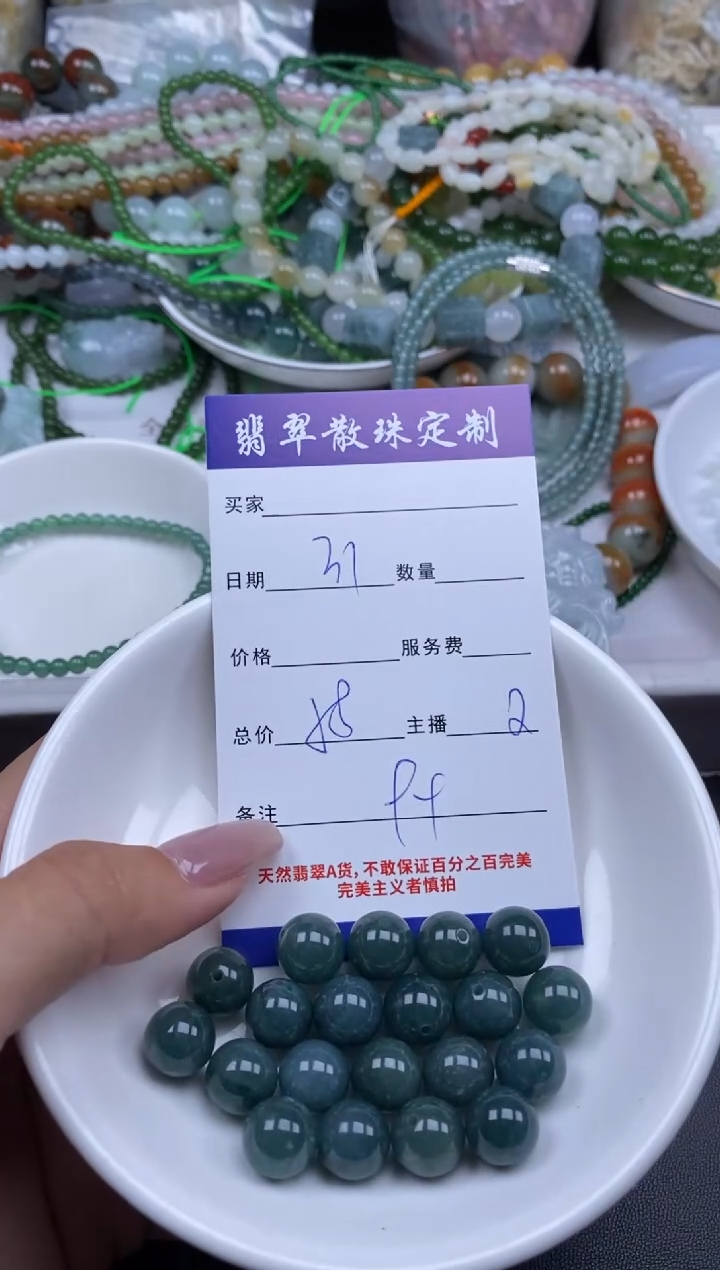 翡翠散珠定制
买家
日期 31 数量
价格 服务费
总价 主播 2
备注
天然翡翠A货，不敢保证百分之百完美
完美主义者慎拍